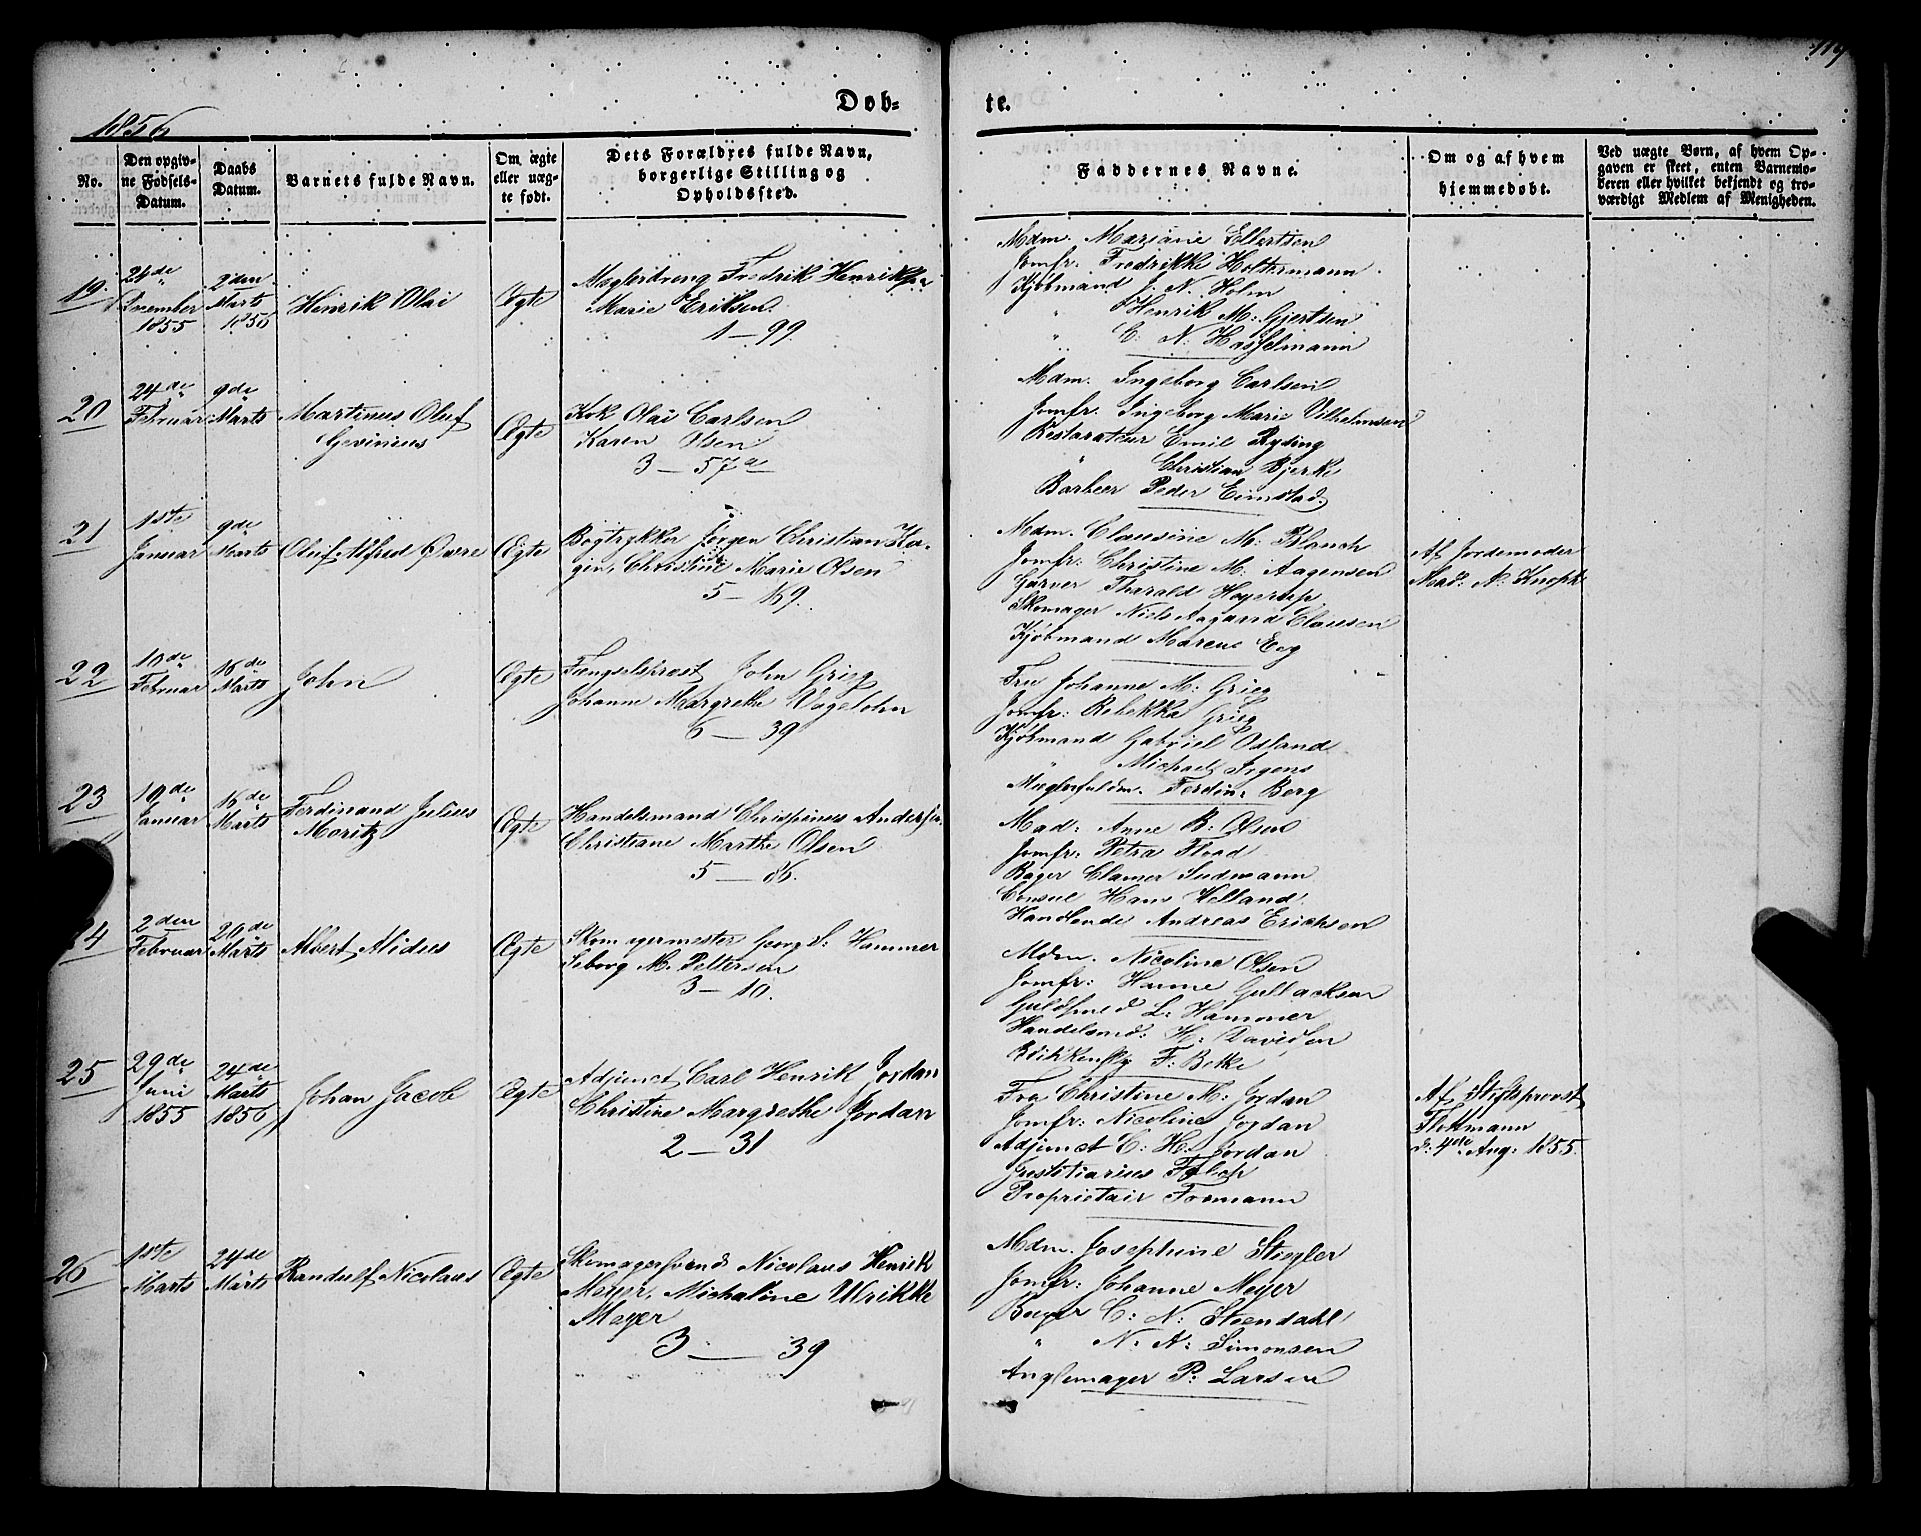 1856
Døb-
te.
119
No.
Den opgiv-
ne Fødsels-
Datum.
Daabs
Datum.
Barnets fulde Navn.
Om ægte
eller uæg-
te født.
Dets Forældres fulde Navn,
borgerlige Stilling og
Opholdssted.
Faddernes Navne.
Om og af hvem
hjemmedøbt.
Ved uægte Børn, af hvem Op-
gaven er skeet, enten Barnemo-
deren eller hvilket bekjendt og tro-
værdigt Medlem af Menigheden.
19
December
1855
2den
Marts
1856
Henrik Olai
Ægte
Fredrik Henriksen
Marie Eriksen
1 — 99.
Mdm. Mariane Ellertsen
Jomfr. Fredrikke Holtermann
Kjøbmand J. N. Holm
" Henrik M: Gjertsen
" C: N: Hasselmann
20
24de
Februar
9de
Marts
Martinus Oluf
Gevinius
Ægte
Kok Olai Carlsen
Karen Olsen
3 — 57a
Mdm. Ingeborg Carlsen
Jomfr. Ingeborg Marie Vilhelmsen
Restaurateur Emil Ryding
" Christian Bjerke
Barbeer Peder Eimstad
21
1ste
Januar
9de
Marts
Oluf Alfred Øvre
Ægte
Bogtrykker Jørgen Christian Ka-
gin, Christine Marie Olsen
5 — 169.
Mdm. Clausine M: Blauch
Jomfr: Christine M: Aagensen
Garver Tharald Høyerup
Skomager Niels Aagaard Clausen
Kjøbmand Marcus Eeg
Af Jordemoder
Mad: N: Knoph
22
10de
Februar
16de
Marts
John
Ægte
Fængselsprest John Grieg
Johanne Margrethe Vogelohn
6 — 39
Fru Johanne M: Grieg
Jomfr: Rebekka Grieg
Kjøbmand Gabriel Osland
" Michael Irgens
Mæglerfuldm. Ferdin: Berg
23
10de
Januar
16de
Marts
Ferdinand Julius
Moritz
Ægte
Handelsmand Chrispinus Andersen
Christiane Marthe Olsen
5 — 86.
Mad: Anne B: Olsen
Jomfr: Petra Flood
Bager Clamer Sudmann
Consul Hans Helland
Handlende Andreas Erichsen
24
2den
Februar
20de
Marts
Albert Alidus
Ægte
Skomagermester Georg S: Hammer
Seborg M. Pettersen
3 — 10.
Mdm. Nicoline Olsen
Jomfr: Hanne Gullacksen
Guldsmed L: Hammer
Handelsmd: H: Davidsen
F: Beke
25
29de
Juni
1855
24de
Marts
1856
Johan Jacob
Ægte
Adjunct Carl Henrik Jordan
Christine Margrethe Jordan
2 — 31
Fru Christine M: Jordan
Jomfr: Nicoline Jordan
Adjunct C: H: Jordan
Justitiarius Falch
Proprietair Formann
Af Stiftsprovst
Flottmann
d: 4de Aug: 1855.
26
1ste
Marts
24de
Marts
Randulf Nicolaus
Ægte
Skomagersvend Nicolaus Henrik
Meyer, Michaline Ulrikke
Mayer
3 — 39
Mdm. Josephine Stiegler
Jomfr: Johanne Meyer
Bager C: N: Steendahl
" N: A: Simonsen
Anglemager P: Larsen